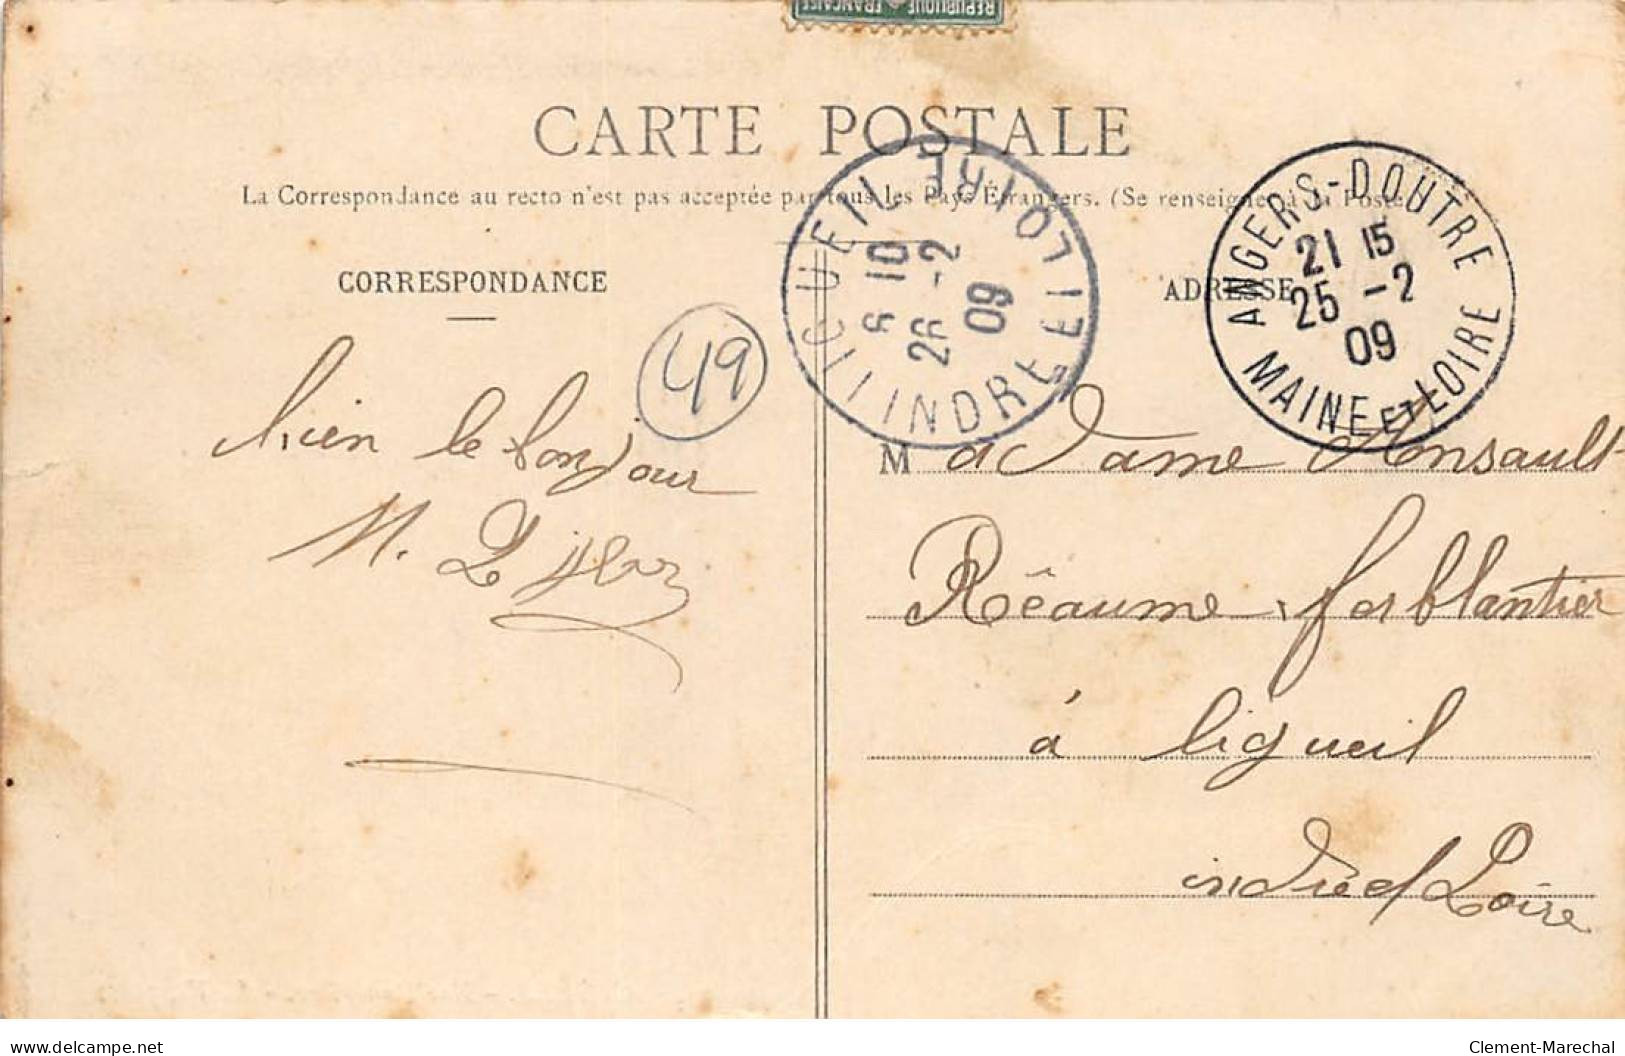 REPUBLIQUE FRANÇAISE
CARTE POSTALE
La Correspondance au recto n'est pas acceptée par tous les Pays Étrangers. (Se renseigner à la Poste)
CORRESPONDANCE
ADRESSE
LIGUEIL
6 10
26 -2
09
INDRE ET LOIRE
ANGERS-DOUTRE
21 15
25 -2
09
MAINE ET LOIRE
49
bien le bonjour
M.
Madame Ansault
Rêaume ferblantier
à ligueil
indre et Loire
www.delcampe.net
Clement-Marechal